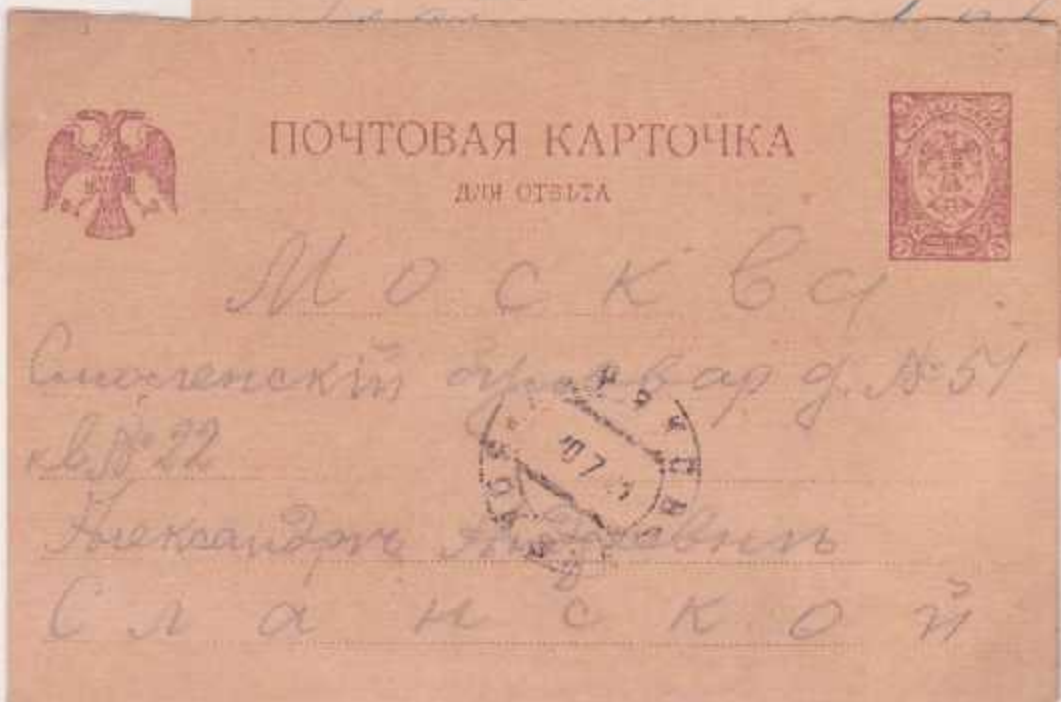 ПОЧТОВАЯ КАРТОЧКА
ДЛЯ ОТВѢТА
Москва
Смоленскій бульвар д. № 51
кв № 22
Александрѣ
Сланской
10 7